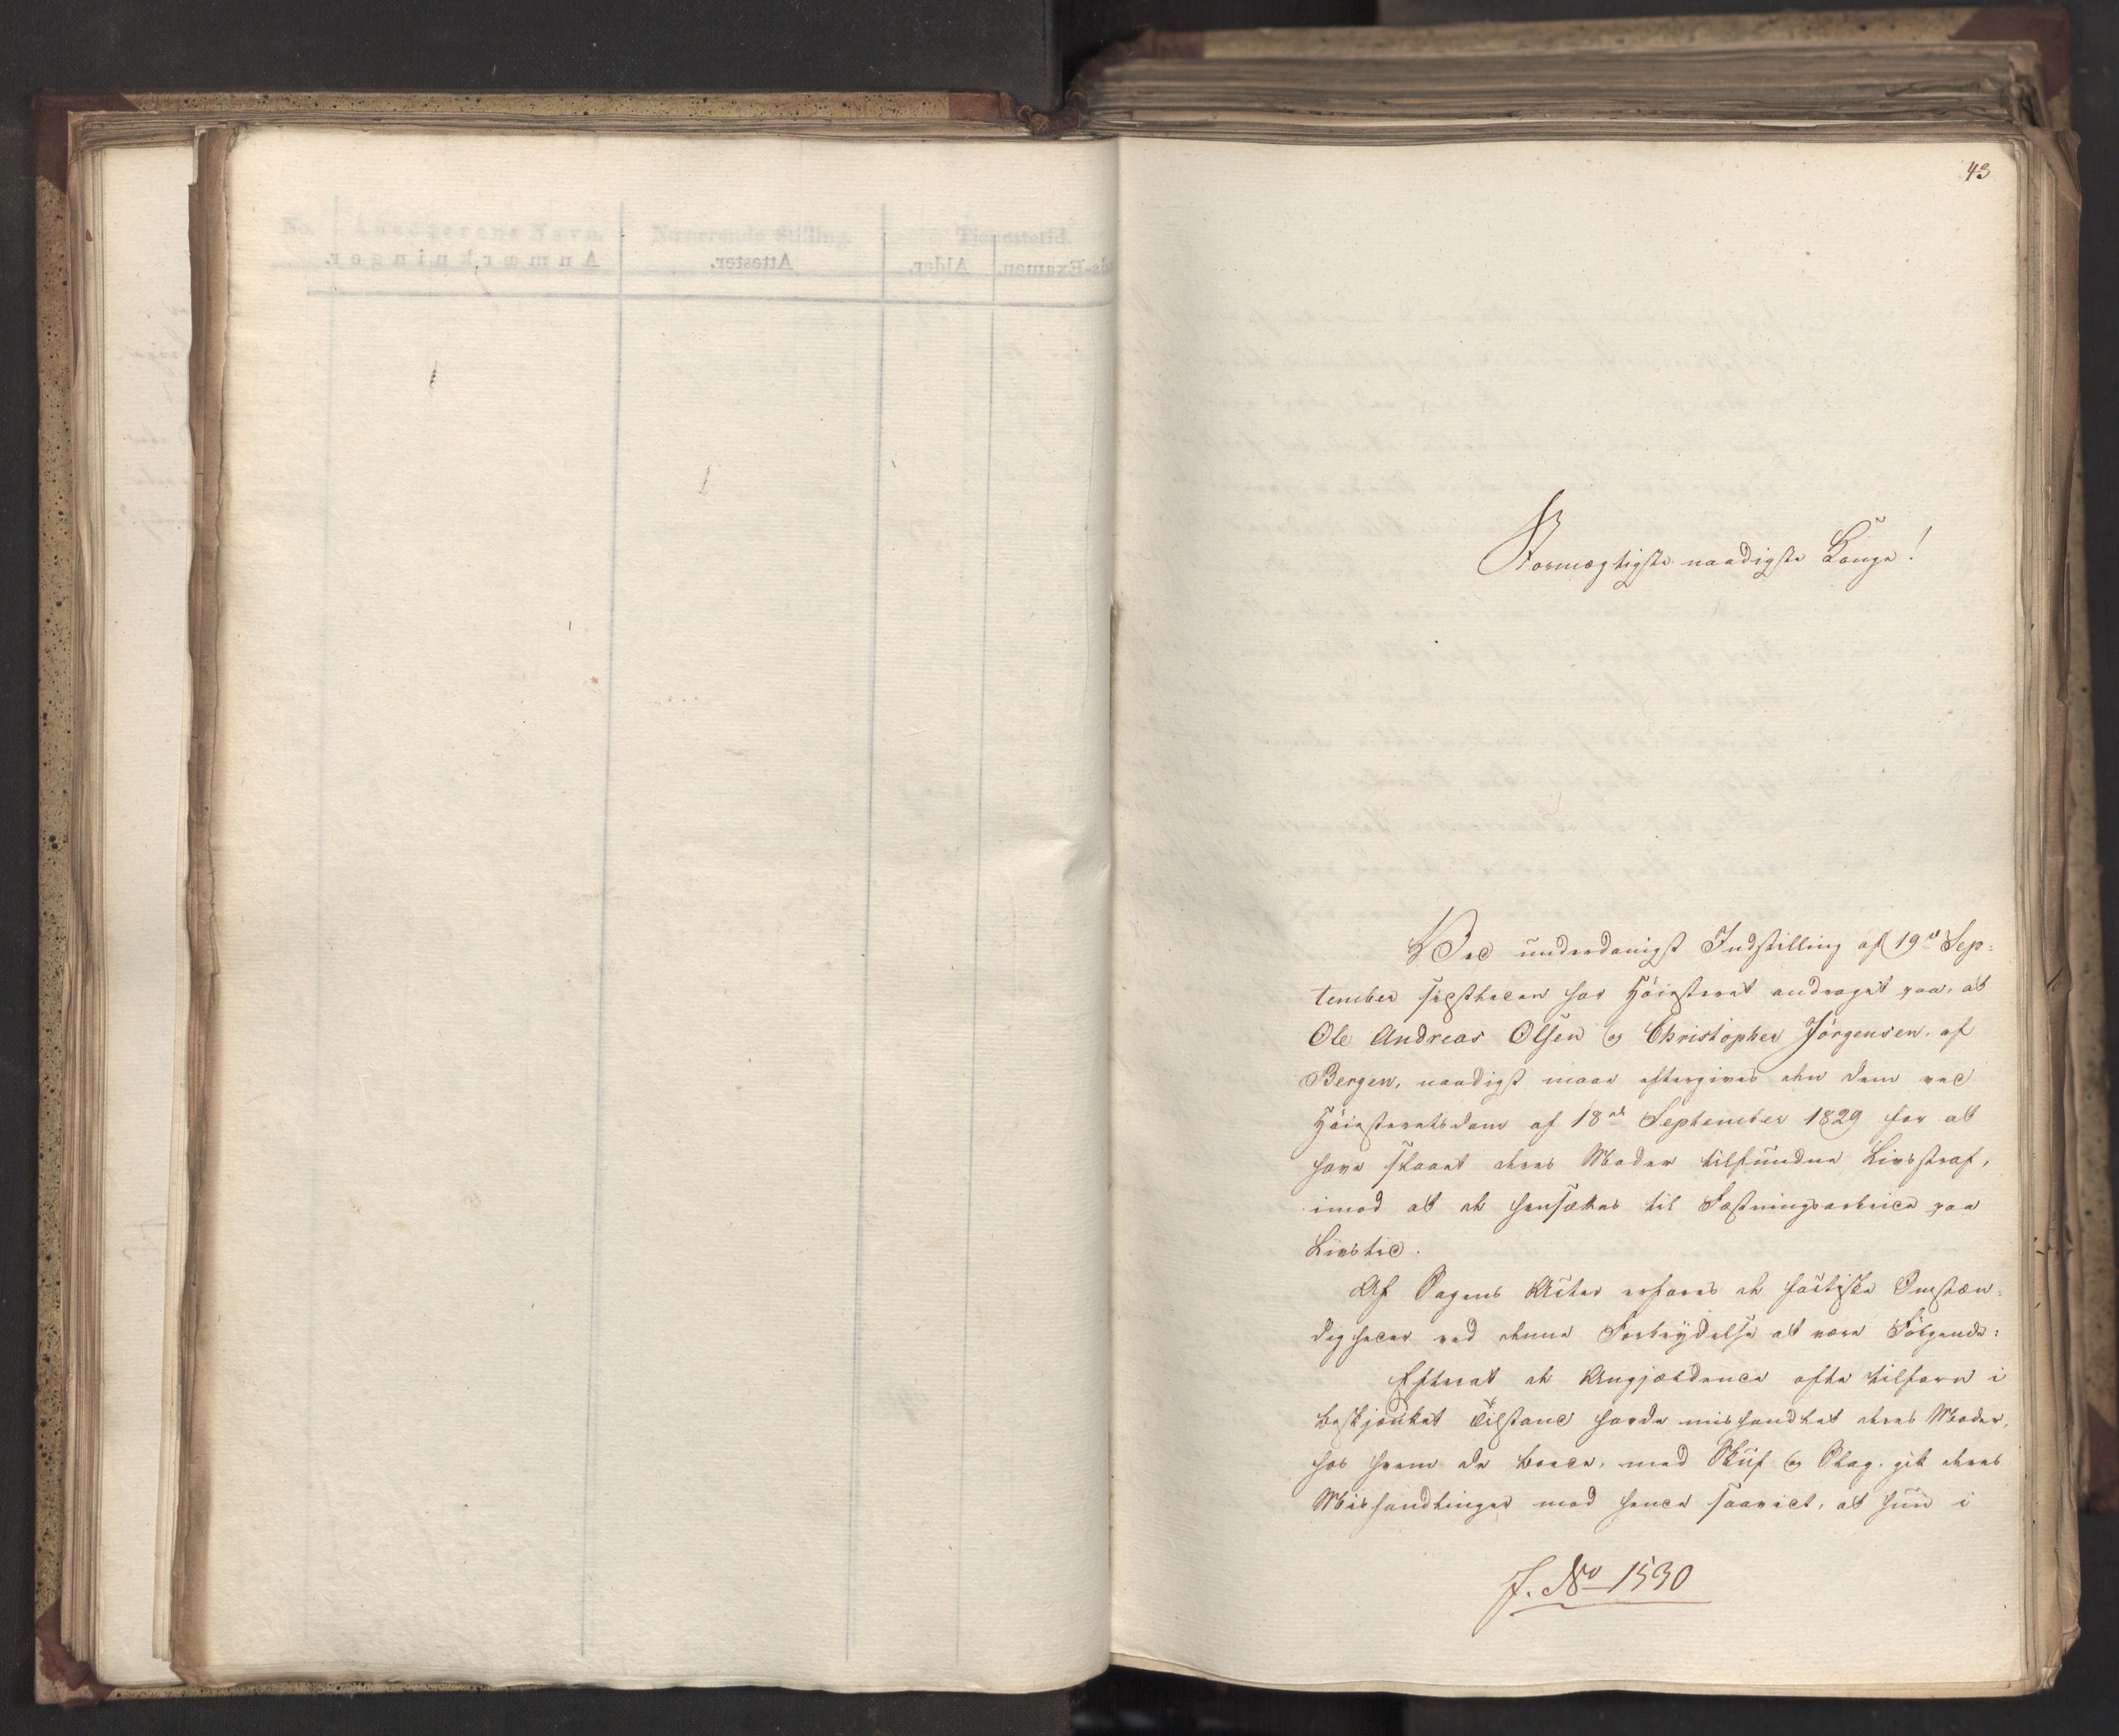 No. Ansøgerens Navn. Nuværende Stilling. Tjenestetid.
Anmærkninger. Attester. Alder. Examen.
43
Stormægtigste naadigste Konge!
Ved underdanigst Indstilling af 19de Sep-
tember sidstleden har Höiesteret andraget paa, at
Ole Andreas Olsen og Christopher Jörgensen, af
Bergen, naadigst maae eftergives den dem ved
Höiesteretsdom af 18de September 1829 for at
have slaaet deres Moder tilfundne Livsstraf,
imod at de hensættes til Fæstningsarbeide paa
Livstid.
Af Sagens Acter erfares de factiske Omstæn-
digheder ved denne Forbrydelse at være Fölgende:
Efterat de Angjældende ofte tilforn i
beskjænket Tilstand havde mishandlet deres Moder,
hos hvem de boede, med Skuf og Slag, gik deres
Mishandlinger mod hende saavidt, at hun i
J. No 1530